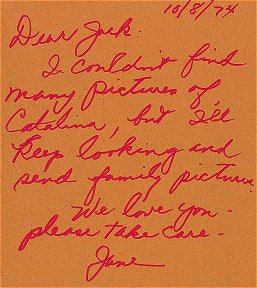 10/8/74
Dear Jack.
I couldn't find
many pictures of
Catalina, but I'll
keep looking and
send family picture.
We love you -
please take care -
Jane